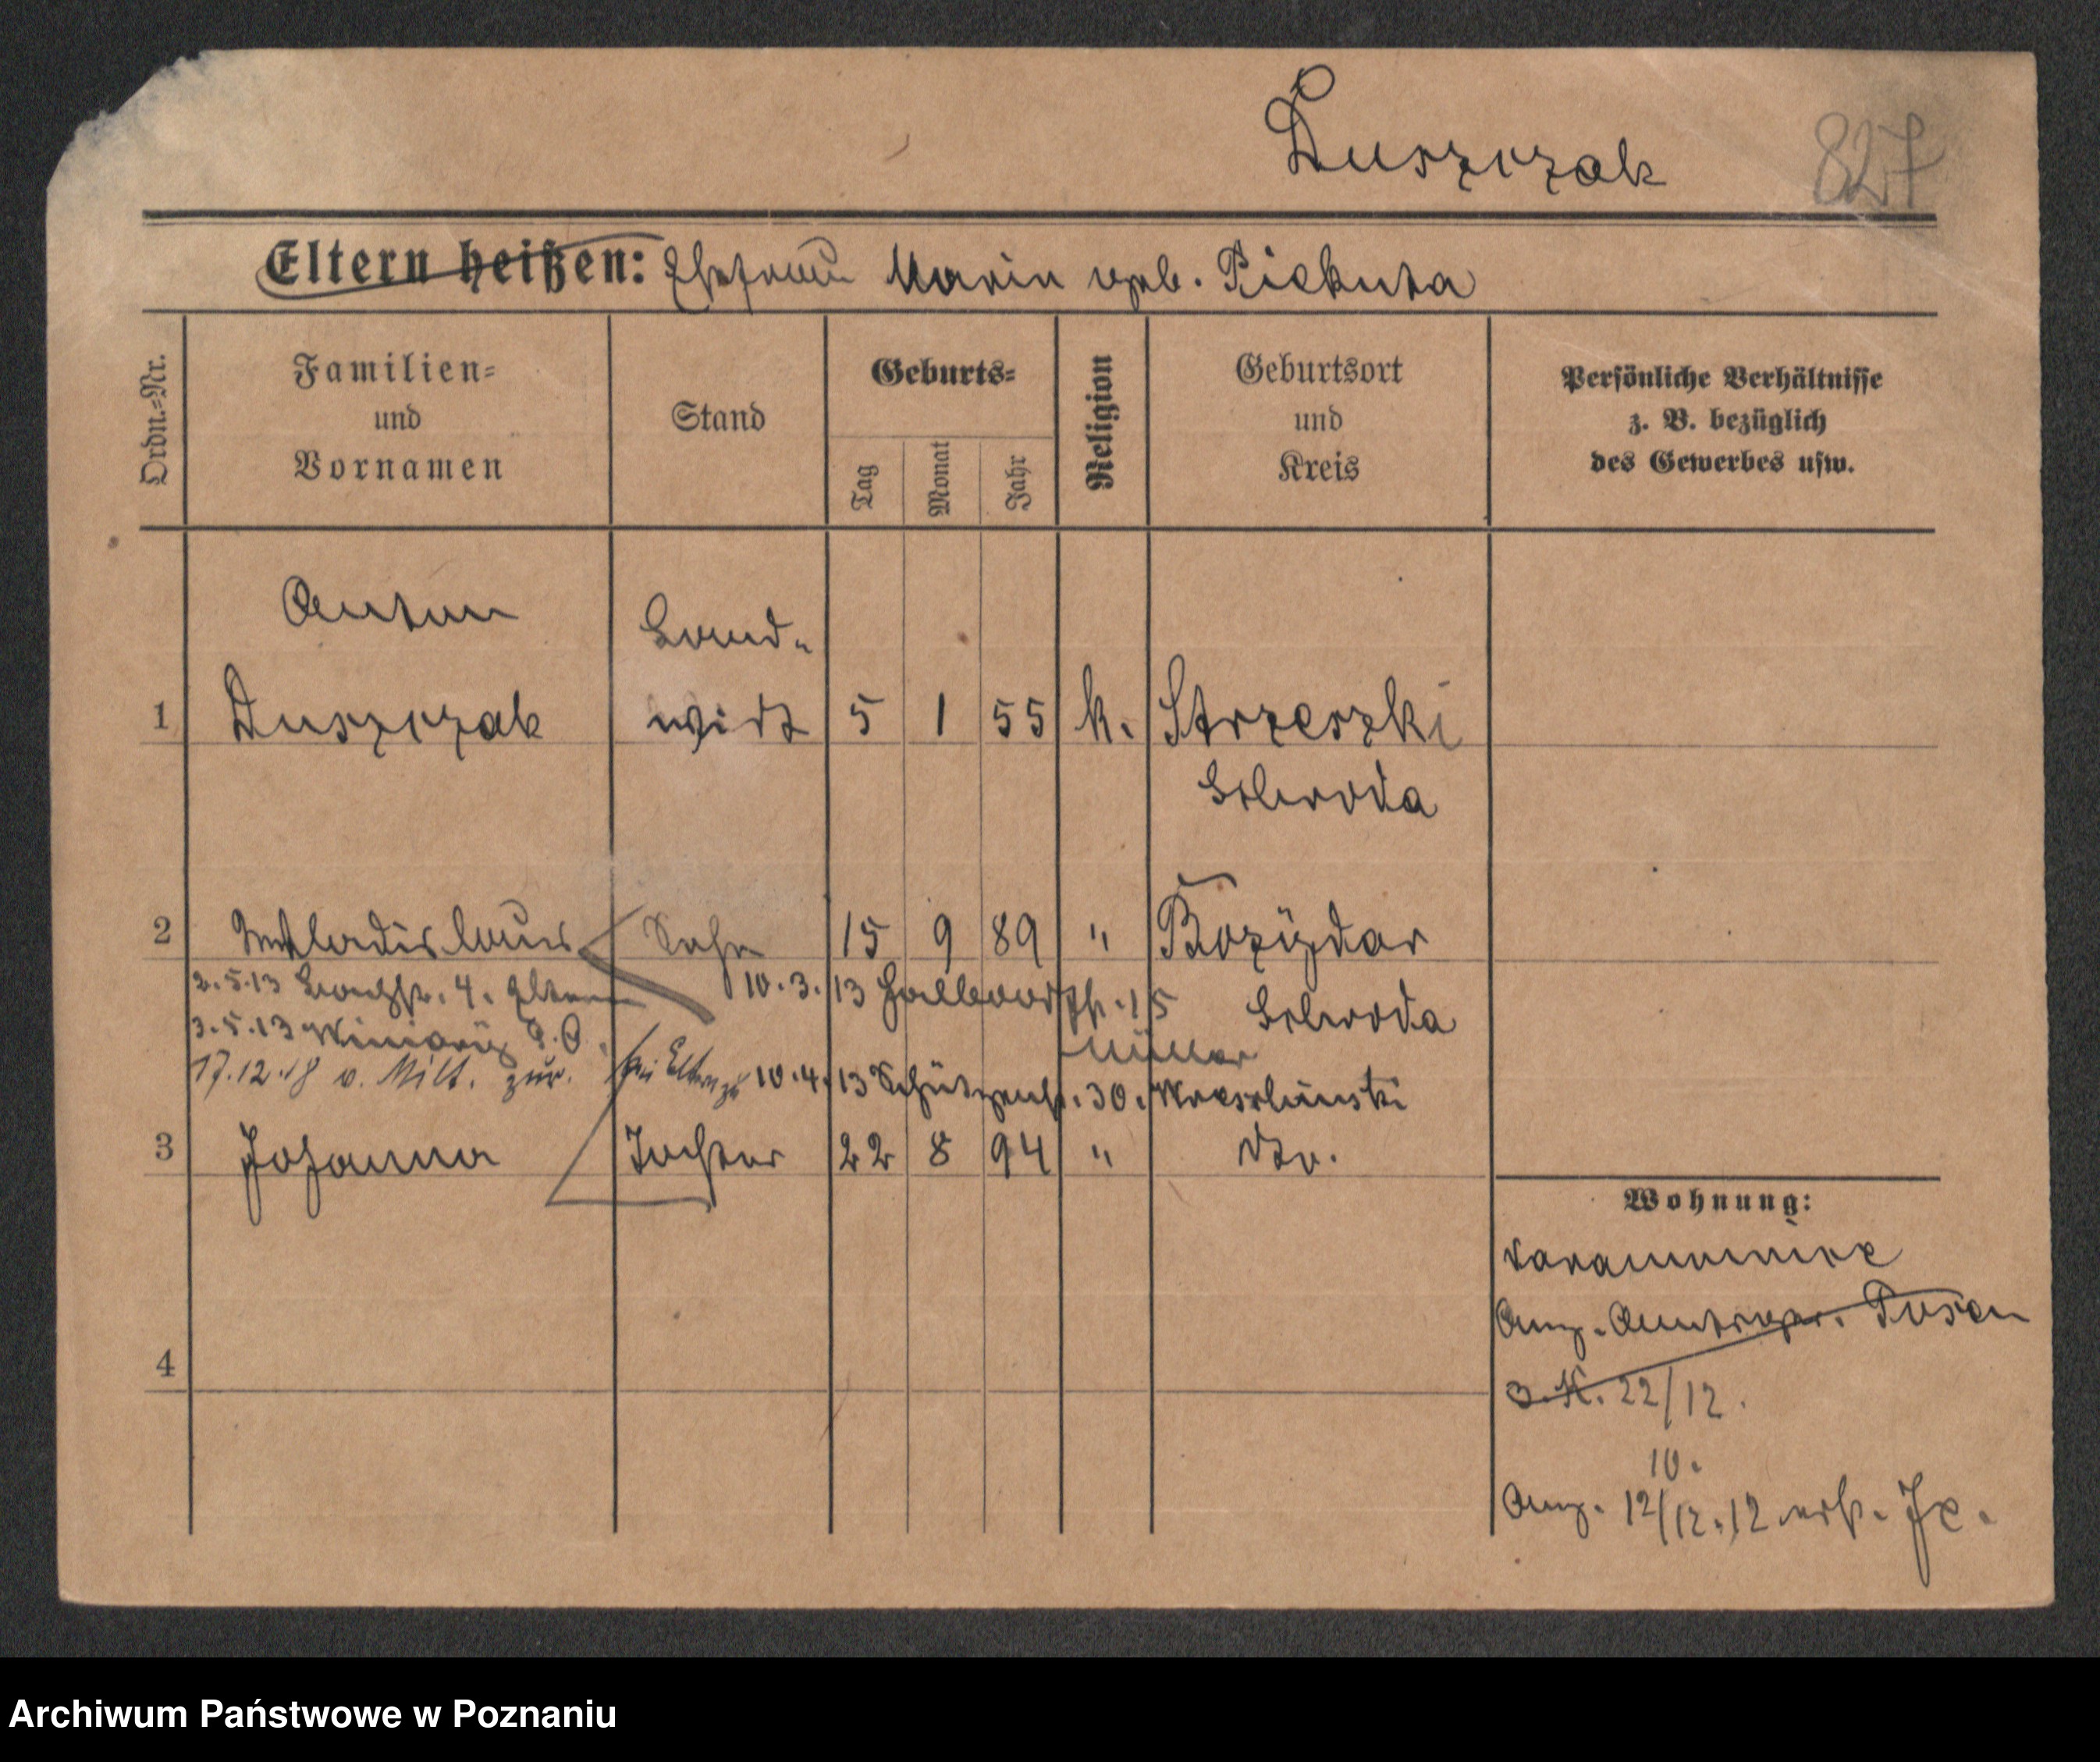 Duszczak
827
Eltern heißen: Ehefrau Maria geb. Piekuta
Ordn.-Nr.
Familien- und Vornamen
Stand
Geburts-
Tag
Monat
Jahr
Religion
Geburtsort und Kreis
Persönliche Verhältnisse
z. B. bezüglich
des Gewerbes usw.
Anton
Land-
1 Duszczak wirt 5 1 55 k. Strzeszki
Schroda
2 Wladislaus Sohn 15 9 89 " Bozydar
2.5.13 4. Eltern 10.3.13 15 Schroda
3.5.13 Winiary
Müller
17.12.18 v. Milit. zur. bei Eltern 10.4.13 Schützenstr. 30.
3 Johanna Tochter 22 8 94 " dto.
Wohnung:
Ang. Posen
O. 22/12.
4
10.
Ang. 12/12.12
Archiwum Państwowe w Poznaniu